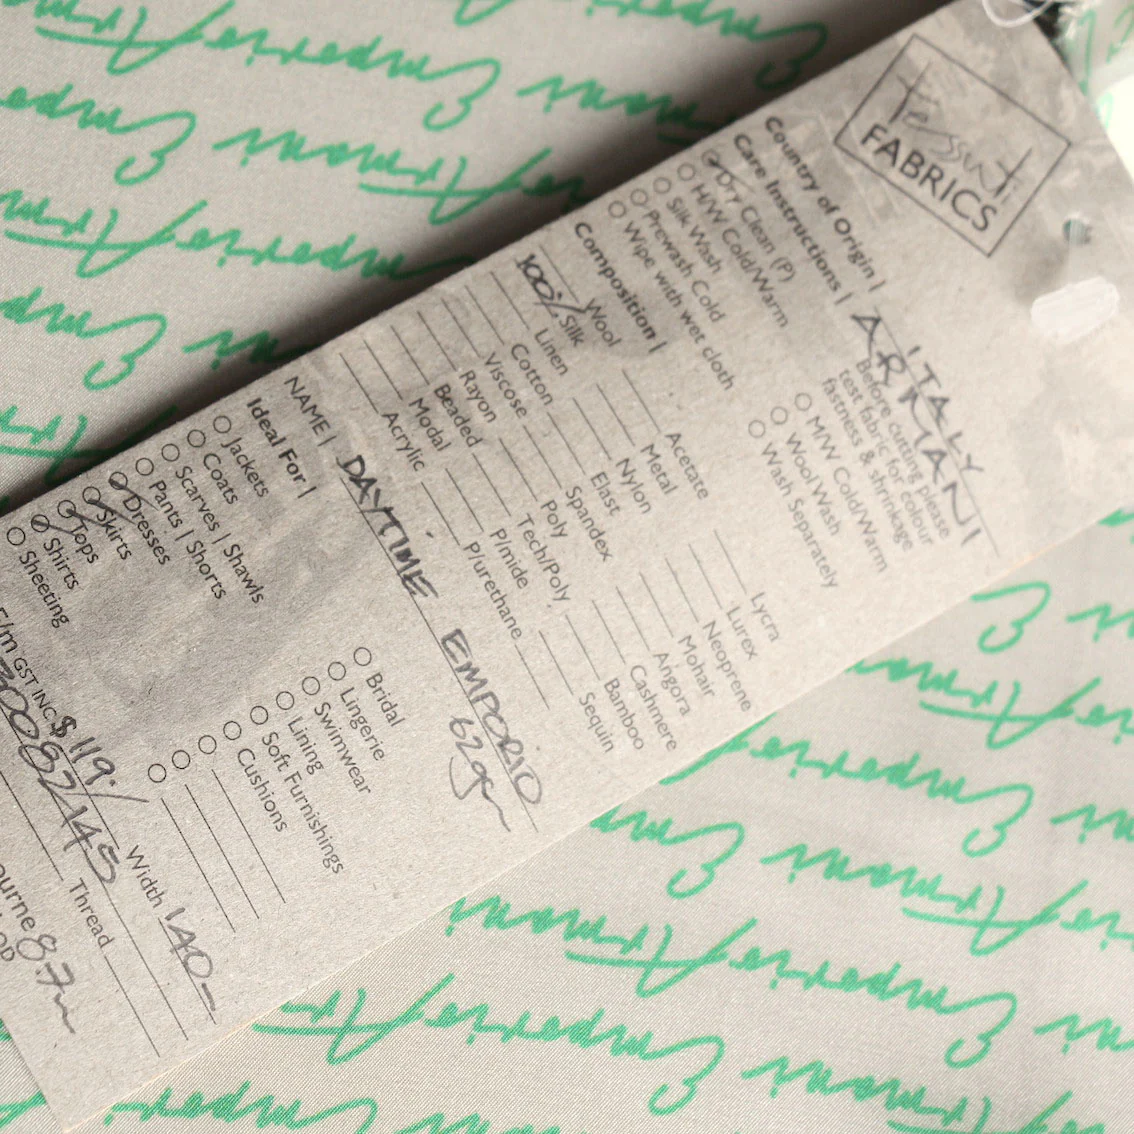 Tessuti
FABRICS
Country of Origin | ITALY
Care Instructions | ARMANI
Dry Clean (P)
H/W Cold/Warm
Silk Wash
Prewash Cold
Wipe with wet cloth
Before cutting please
test fabric for colour
fastness & shrinkage
M/W Cold/Warm
Wool Wash
Wash Separately
Composition |
Wool
100% Silk
Linen
Cotton
Viscose
Rayon
Beaded
Modal
Acrylic
Acetate
Metal
Nylon
Elast
Spandex
Poly
Tech/Poly
P/mide
P/urethane
Lycra
Lurex
Neoprene
Mohair
Angora
Cashmere
Bamboo
Sequin
NAME | DAYTIME EMPORIO
62gm
Ideal For |
Jackets
Coats
Scarves | Shawls
Pants | Shorts
Dresses
Skirts
Tops
Shirts
Sheeting
Bridal
Lingerie
Swimwear
Lining
Soft Furnishings
Cushions
/m GST INC $ 119
Width 140
Thread
Emporio Armani
Emporio Armani
Emporio Armani
Emporio Armani
Emporio Armani
Emporio Armani